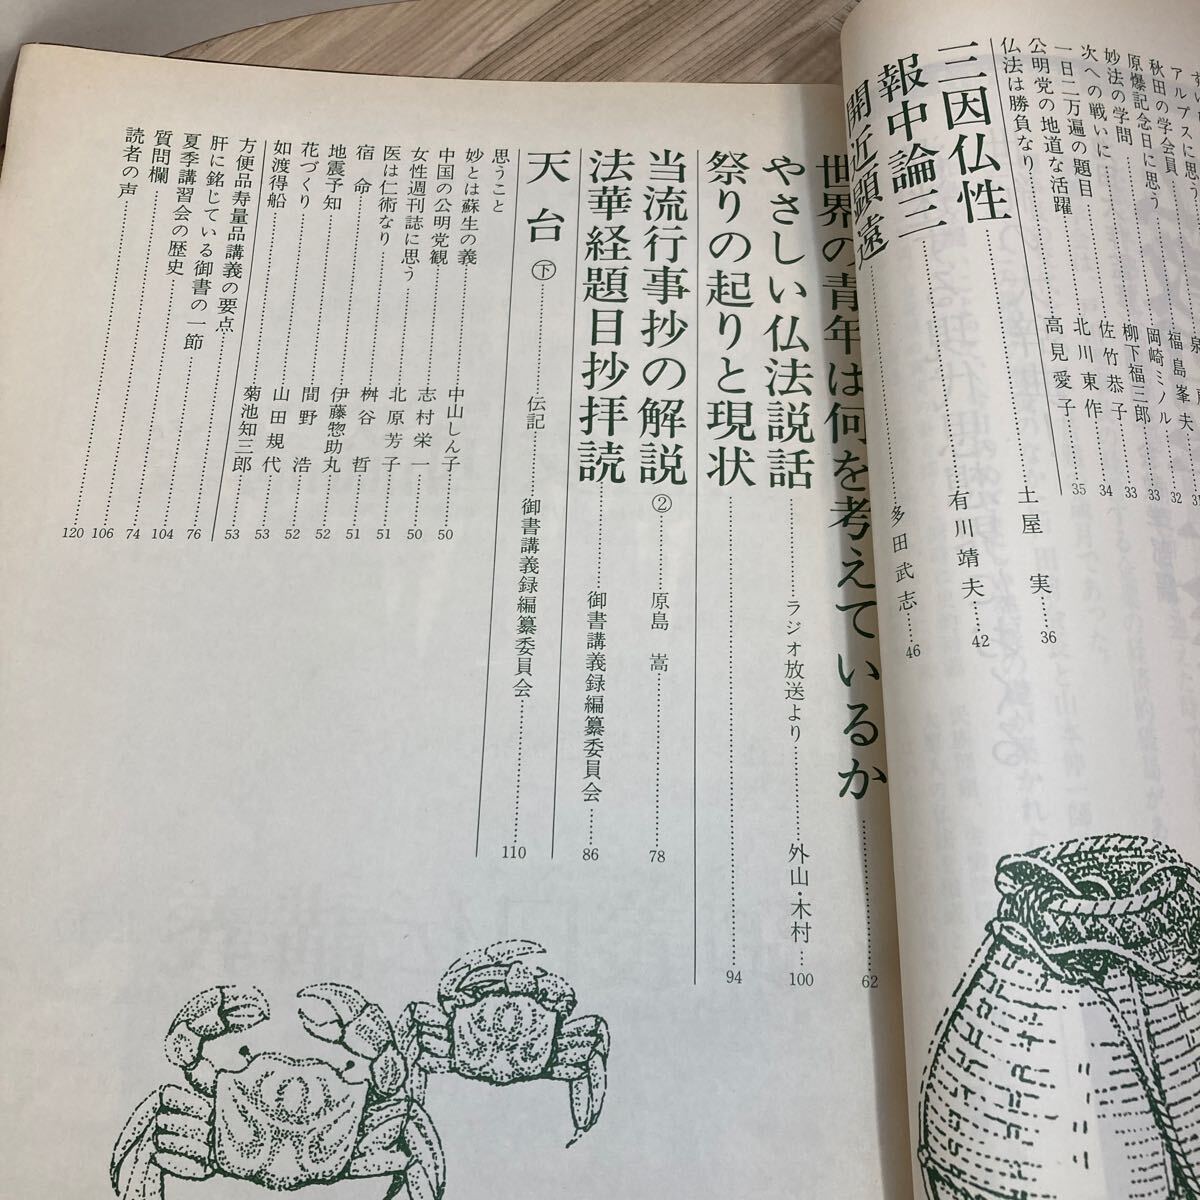 アルプスに思う
福島峯夫 32
秋田の学会員
岡崎ミノル 33
原爆記念日に思う
柳下福三郎 33
妙法の学問
佐竹恭子 34
次への戦いに
北川東作 35
一日二万遍の題目
高見愛子
公明党の地道な活躍
仏法は勝負なり
三因仏性 土屋 実 36
報中論三 有川靖夫 42
開近顕遠 多田武志 46
世界の青年は何を考えているか 62
やさしい仏法説話 ラジオ放送より 外山・木村 100
祭りの起りと現状 94
当流行事抄の解説② 原島 嵩 78
法華経題目抄拝読 御書講義録編纂委員会 86
天台㊦ 伝記 御書講義録編纂委員会 110
思うこと
妙とは蘇生の義 中山しん子 50
中国の公明党観 志村栄一 50
女性週刊誌に思う 北原芳子 51
医は仁術なり 桝谷 哲 51
宿命 伊藤惣助丸 52
地震予知 間野 浩 52
花づくり 山田規代 53
如渡得船 菊池知三郎 53
方便品寿量品講義の要点 76
肝に銘じている御書の一節 104
夏季講習会の歴史 74
質問欄 106
読者の声 120